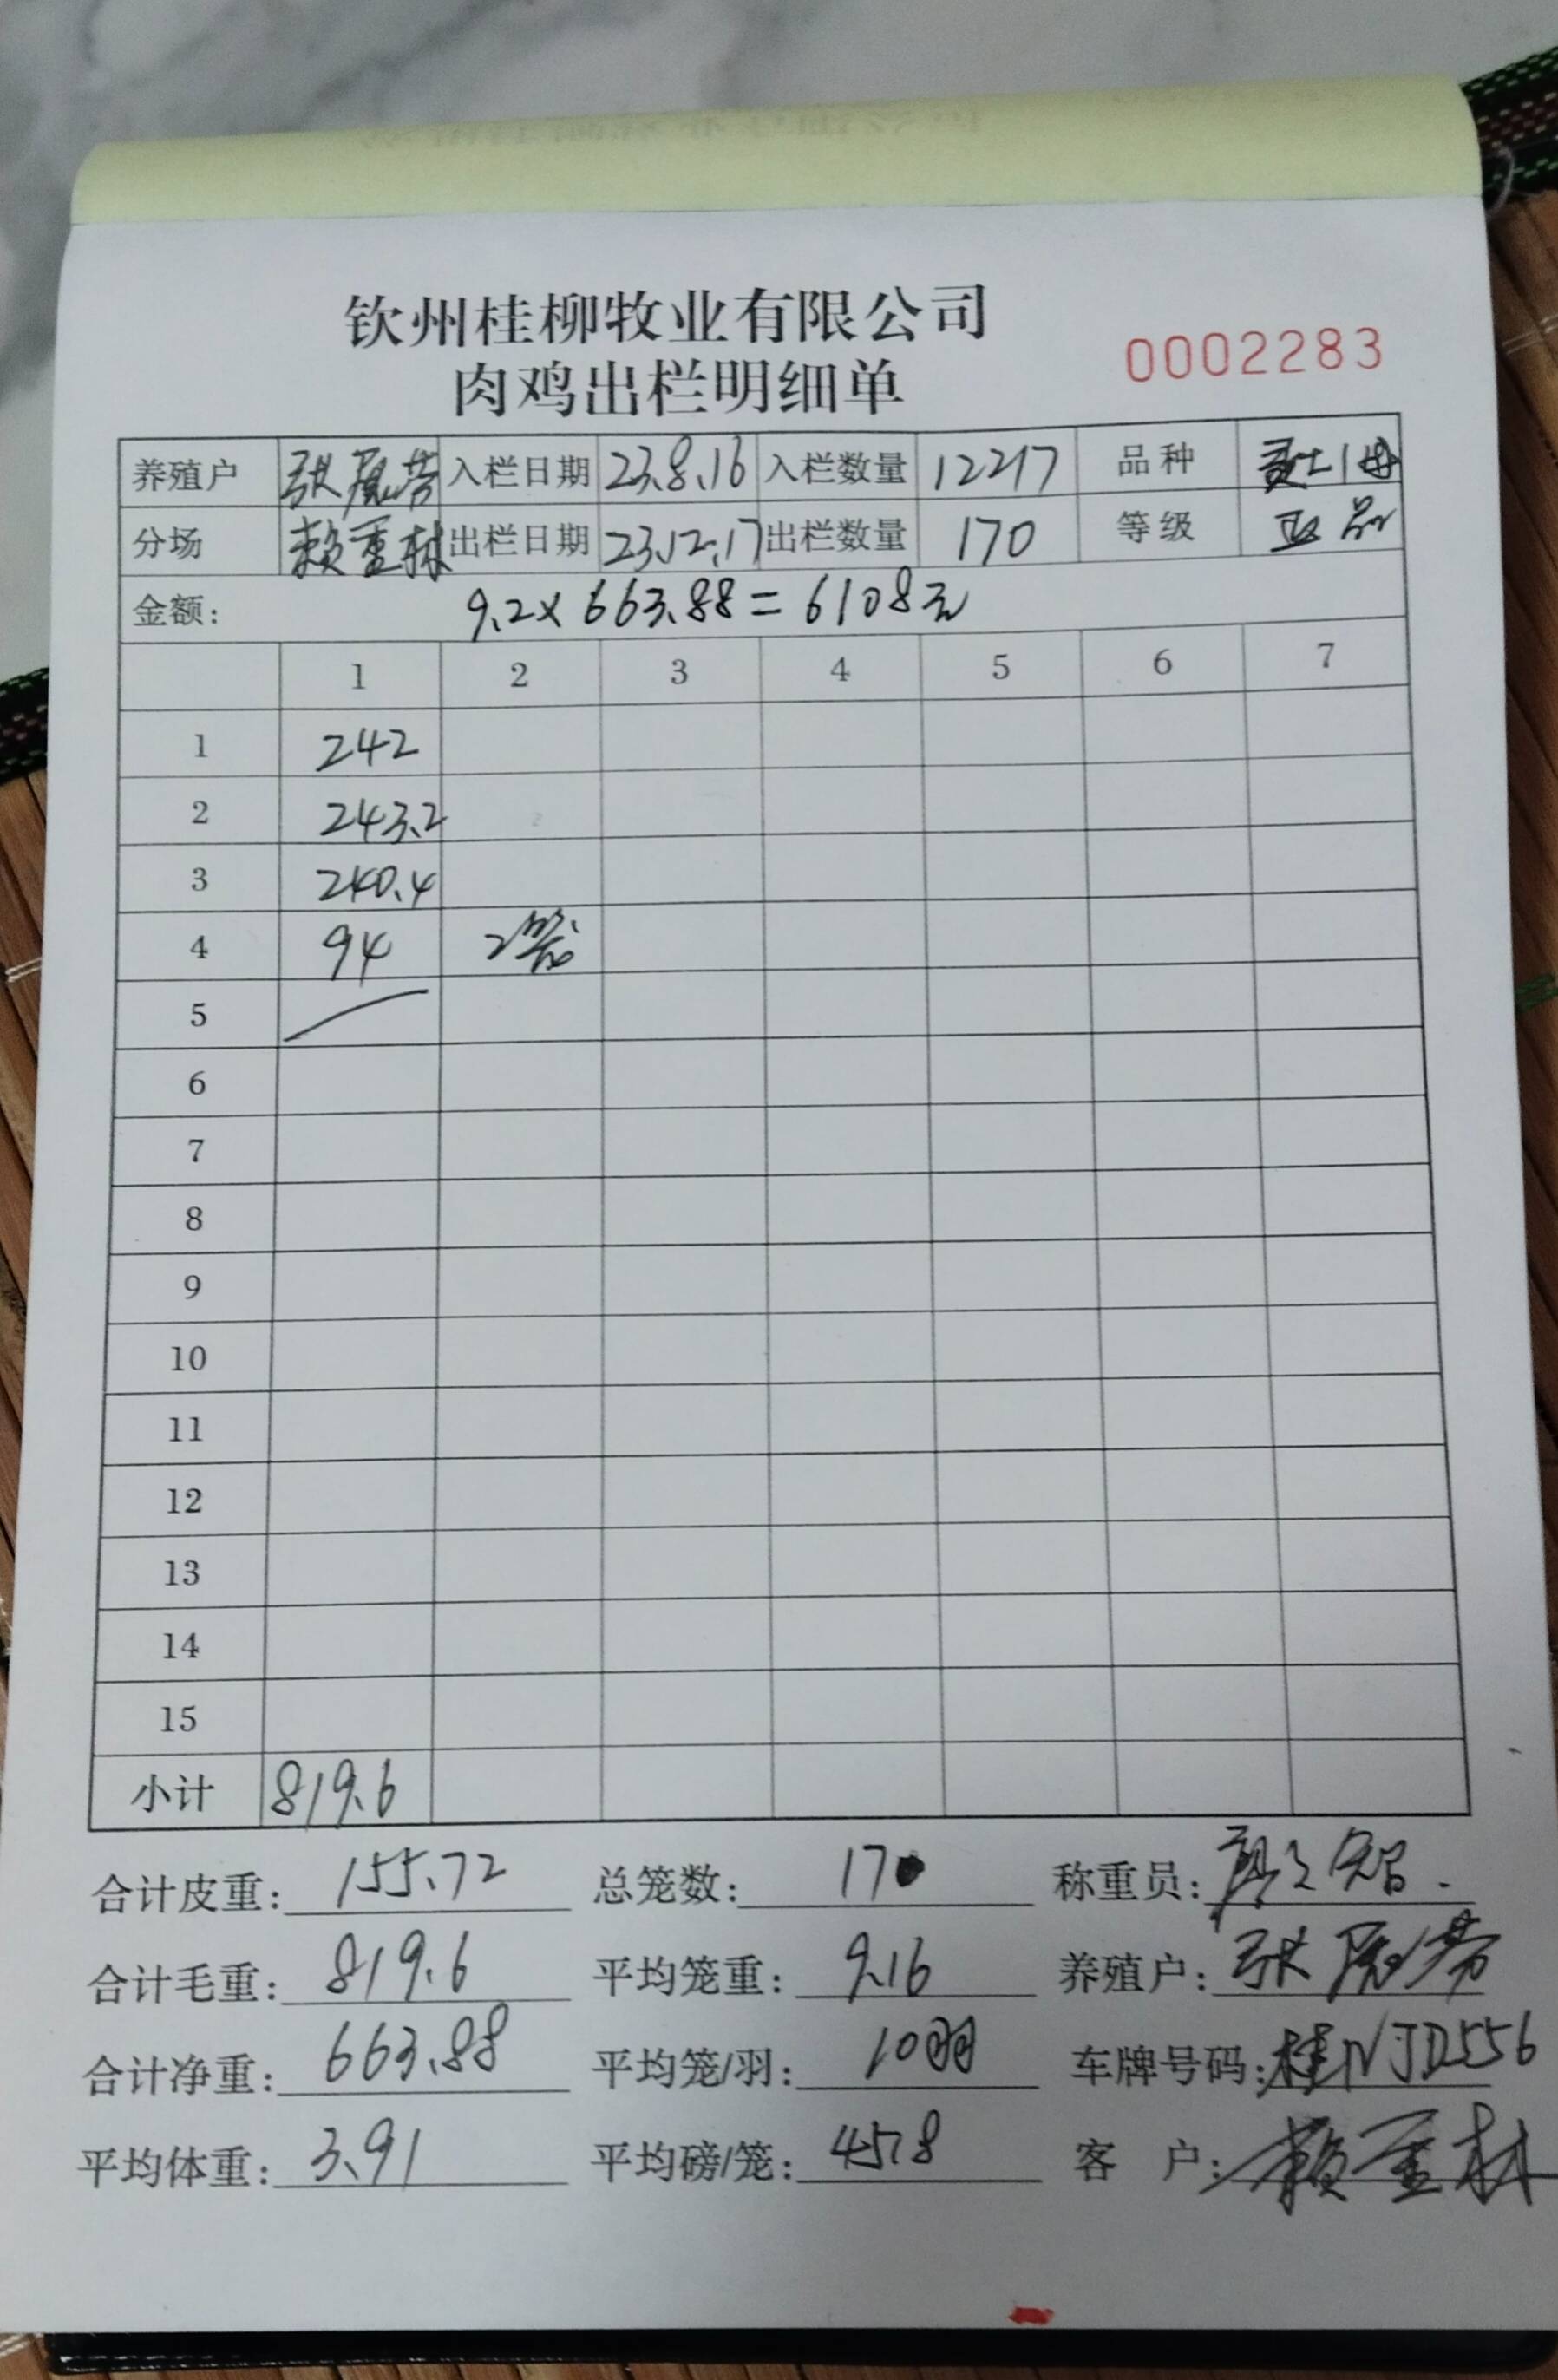 钦州桂柳牧业有限公司
肉鸡出栏明细单
0002283
养殖户 张 入栏日期 23.8.16 入栏数量 12217 品种
分场 赖重林 出栏日期 23.12.17 出栏数量 170 等级 正品
金额: 9.2×663.88=6108元
1 2 3 4 5 6 7
1 242
2 243.2
3 240.4
4 94 2笼
5
6
7
8
9
10
11
12
13
14
15
小计 819.6
合计皮重: 155.72 总笼数: 17 称重员:
合计毛重: 819.6 平均笼重: 9.16 养殖户: 张
合计净重: 663.88 平均笼/羽: 10羽 车牌号码: 桂NJD556
平均体重: 3.91 平均磅/笼: 45.8 客 户: 赖重林